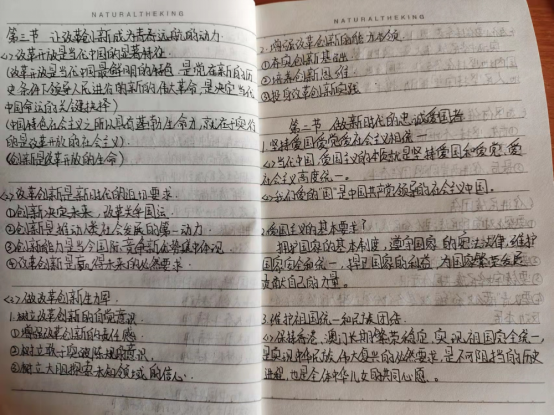 NATURALTHEKING
第三节 让改革创新成为青春远航的动力
(1)改革开放是当代中国的显著特征
(改革开放是当代中国最鲜明的特色 是党在新的历
史条件下领导人民进行的新的伟大革命,是决定当代
中国命运的关键抉择)
(中国特色社会主义之所以具有蓬勃生命力,就在于实行
的是改革开放的社会主义)
(创新是改革开放的生命)
(2)改革创新是新时代的迫切要求.
①创新决定未来,改革关乎国运.
②创新是推动人类社会发展的第一动力.
③创新能力是当今国际竞争新优势集中体现
④改革创新是赢得未来的必然要求.
(3)做改革创新生力军
1.树立改革创新的自觉意识.
①增强改革创新的责任感
②树立敢于突破陈规的意识.
③树立大胆探索未知领域的信心.
NATURALTHEKING
2.增强改革创新的能力本领
①夯实创新基础
②培养创新思维
③投身改革创新实践
第二节 做新时代的忠诚爱国者
1.坚持爱国爱党爱社会主义相统一
(1)当代中国,爱国主义的本质就是坚持爱国和爱党、爱
社会主义高度统一。
(2)我们爱的"国"是中国共产党领导的社会主义中国。
2.爱国主义的基本要求
拥护国家的基本制度,遵守国家的宪法法律,维护
国家安全和统一,捍卫国家的利益,为国家繁荣发展
贡献自己的力量。
3.维护祖国统一和民族团结
(1)保持香港、澳门长期繁荣稳定,实现祖国完全统一,
是实现中华民族伟大复兴的必然要求,是不可阻挡的历史
进程,也是全体中华儿女的共同心愿。